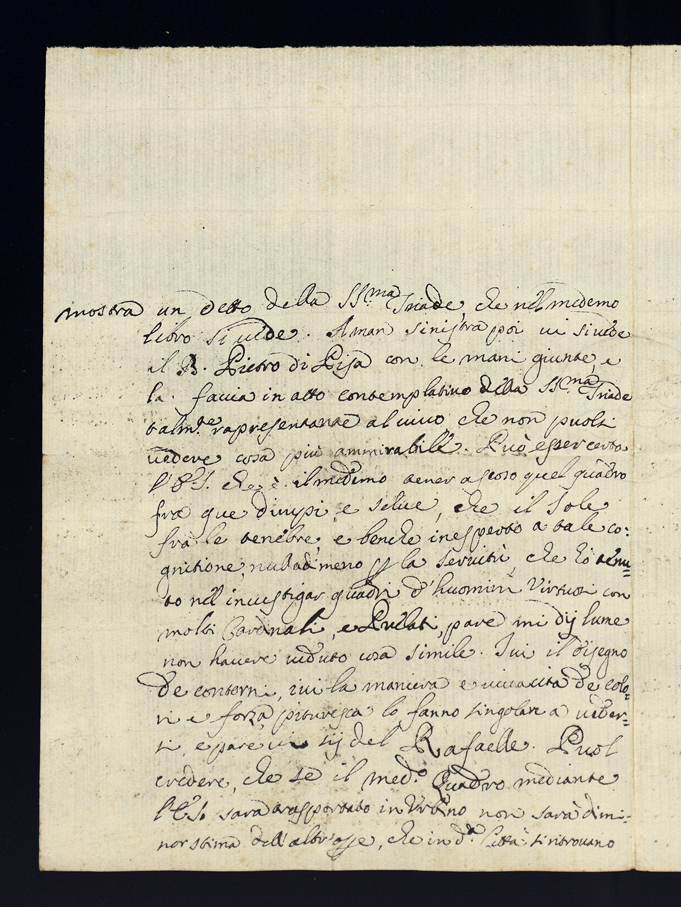 mostra un detto della SS.ma Triade, che nell medemo
libro si vede. A man sinistra poi vi si vede
il B. Pietro di Pisa con le mani giunte, e
la faccia in atto contemplativo della SS.ma Triade
talm.te rapresentante al vivo, che non puolsi
vedere cosa più ammirabile. Può esser certo
che è il medemo tener ascoso quel quadro
frà que dirupi, e selve, che il Sole
frà le tenebre, e benche inesperto a tale co:
gnitione, nulladimeno p la servitù, che hò tenu:
to nell investigar quadri d'huomini Virtuosi con
molti Cardinali, e Prelati, pare mi dij lume
non havere veduto cosa simile. Ivi il disegno
de contorni, ivi la maniera e vivacità de colo:
ri e forza pituresca lo fanno singolare a veder:
si, e pare vi sij del Rafaelle. Puol
credere, che se il med.o Quadro mediante
sarà trasportato in Urbino non sarà di mi:
nor stima dell'altr'osse, che in d.a Città si ritrovano